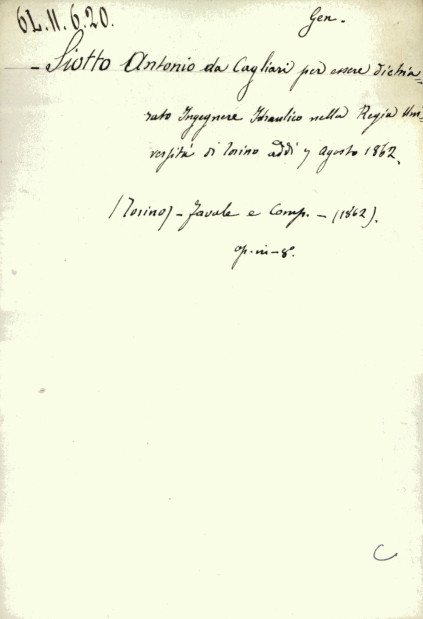 6L.11.6.20.
Gen.
- Siotto Antonio da Cagliari per essere dichia-
rato Ingegnere Idraulico nella Regia Uni-
versitá di Torino addì 7 Agosto 1862.
(Torino) - Favale e Comp. - (1862).
op. in-8º.
C